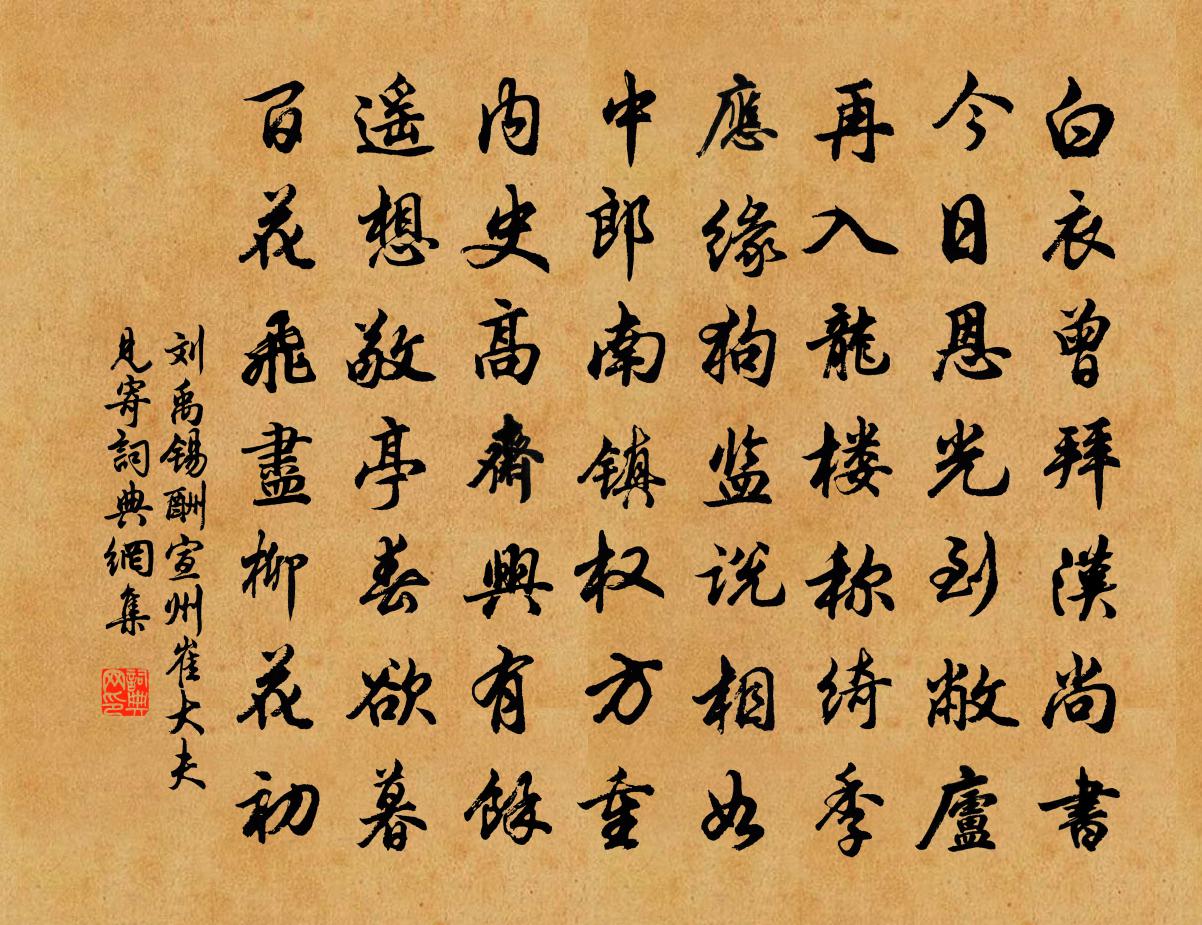 白衣曾拜漢尚書
今日恩光到敝廬
再入龍楼称绮季
應缘狗监説相如
中郎南镇权方重
内史高齋興有餘
遥想敬亭春欲暮
百花飛盡柳花初
刘禹锡酬宣州崔大夫
見寄詞典網集
詞典网印